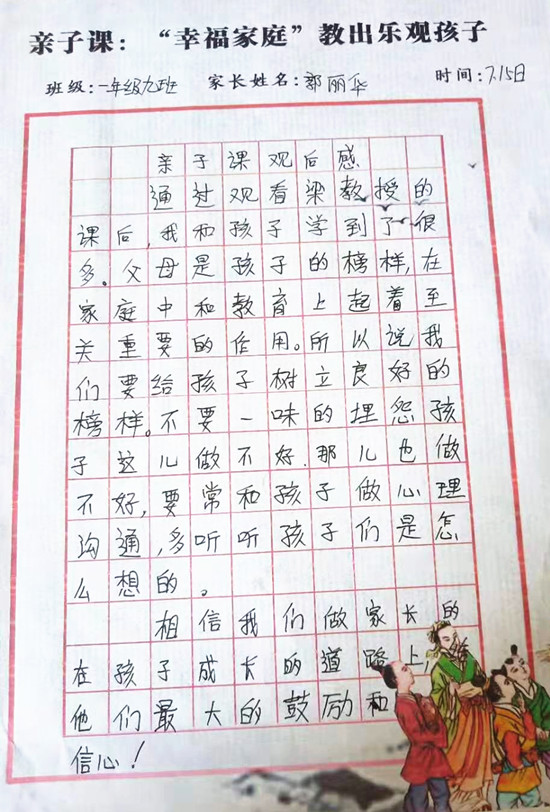 亲子课：“幸福家庭”教出乐观孩子
班级：一年级九班 家长姓名：郭丽华 时间：7.15日
亲子课观后感
通过观看梁教授的
课后，我和孩子学到了很
多。父母是孩子的榜样，在
家庭中和教育上起着至
关重要的作用。所以说我
们要给孩子树立良好的
榜样。不要一味的埋怨孩
子这儿做不好，那儿也做
不好，要常和孩子做心理
沟通，多听听孩子们是怎
么想的。
相信我们做家长的
在孩子成长的道路上，
他们最大的鼓励和
信心！